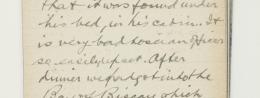 that it was found under
his bed, in his cabin. It
is very bad to see an officer
so easily upset. After
dinner we got into the
Bay of Biscay which